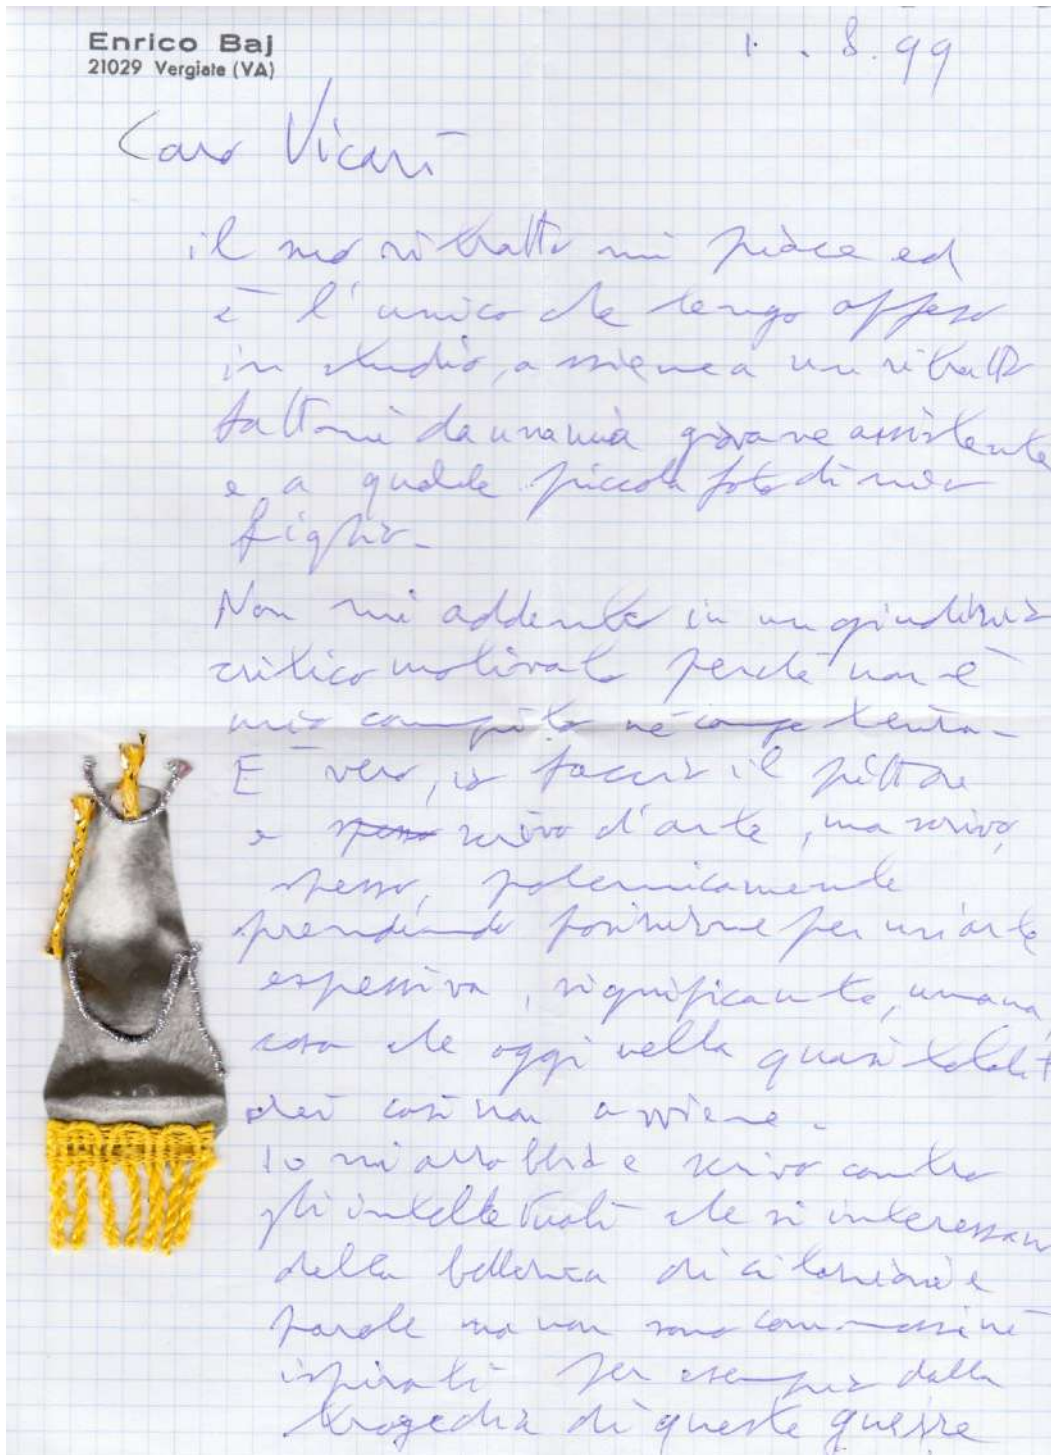 Enrico Baj
21029 Vergiate (VA)
1. . 8. 99
Caro Vicari
il suo ritratto mi piace ed
è l'unico che tengo appeso
in studio, assieme a un ritratto
fattomi da una mia giovane assistente
e a qualche piccola foto di mio
figlio.
Non mi addentro in un giudizio
critico motivato perché non è
mio compito né competenza.
È vero, io faccio il pittore
e spesso scrivo d'arte, ma scrivo,
spesso, polemicamente
prendendo posizione per un'arte
espressiva, significante, umana,
cosa che oggi nella quasi totalità
dei casi non avviene.
Io mi arrabbio e scrivo contro
gli intellettuali che si interessano
della bellezza di citazioni e
parole ma non sono commossi né
ispirati per esempio dalla
tragedia di queste guerre